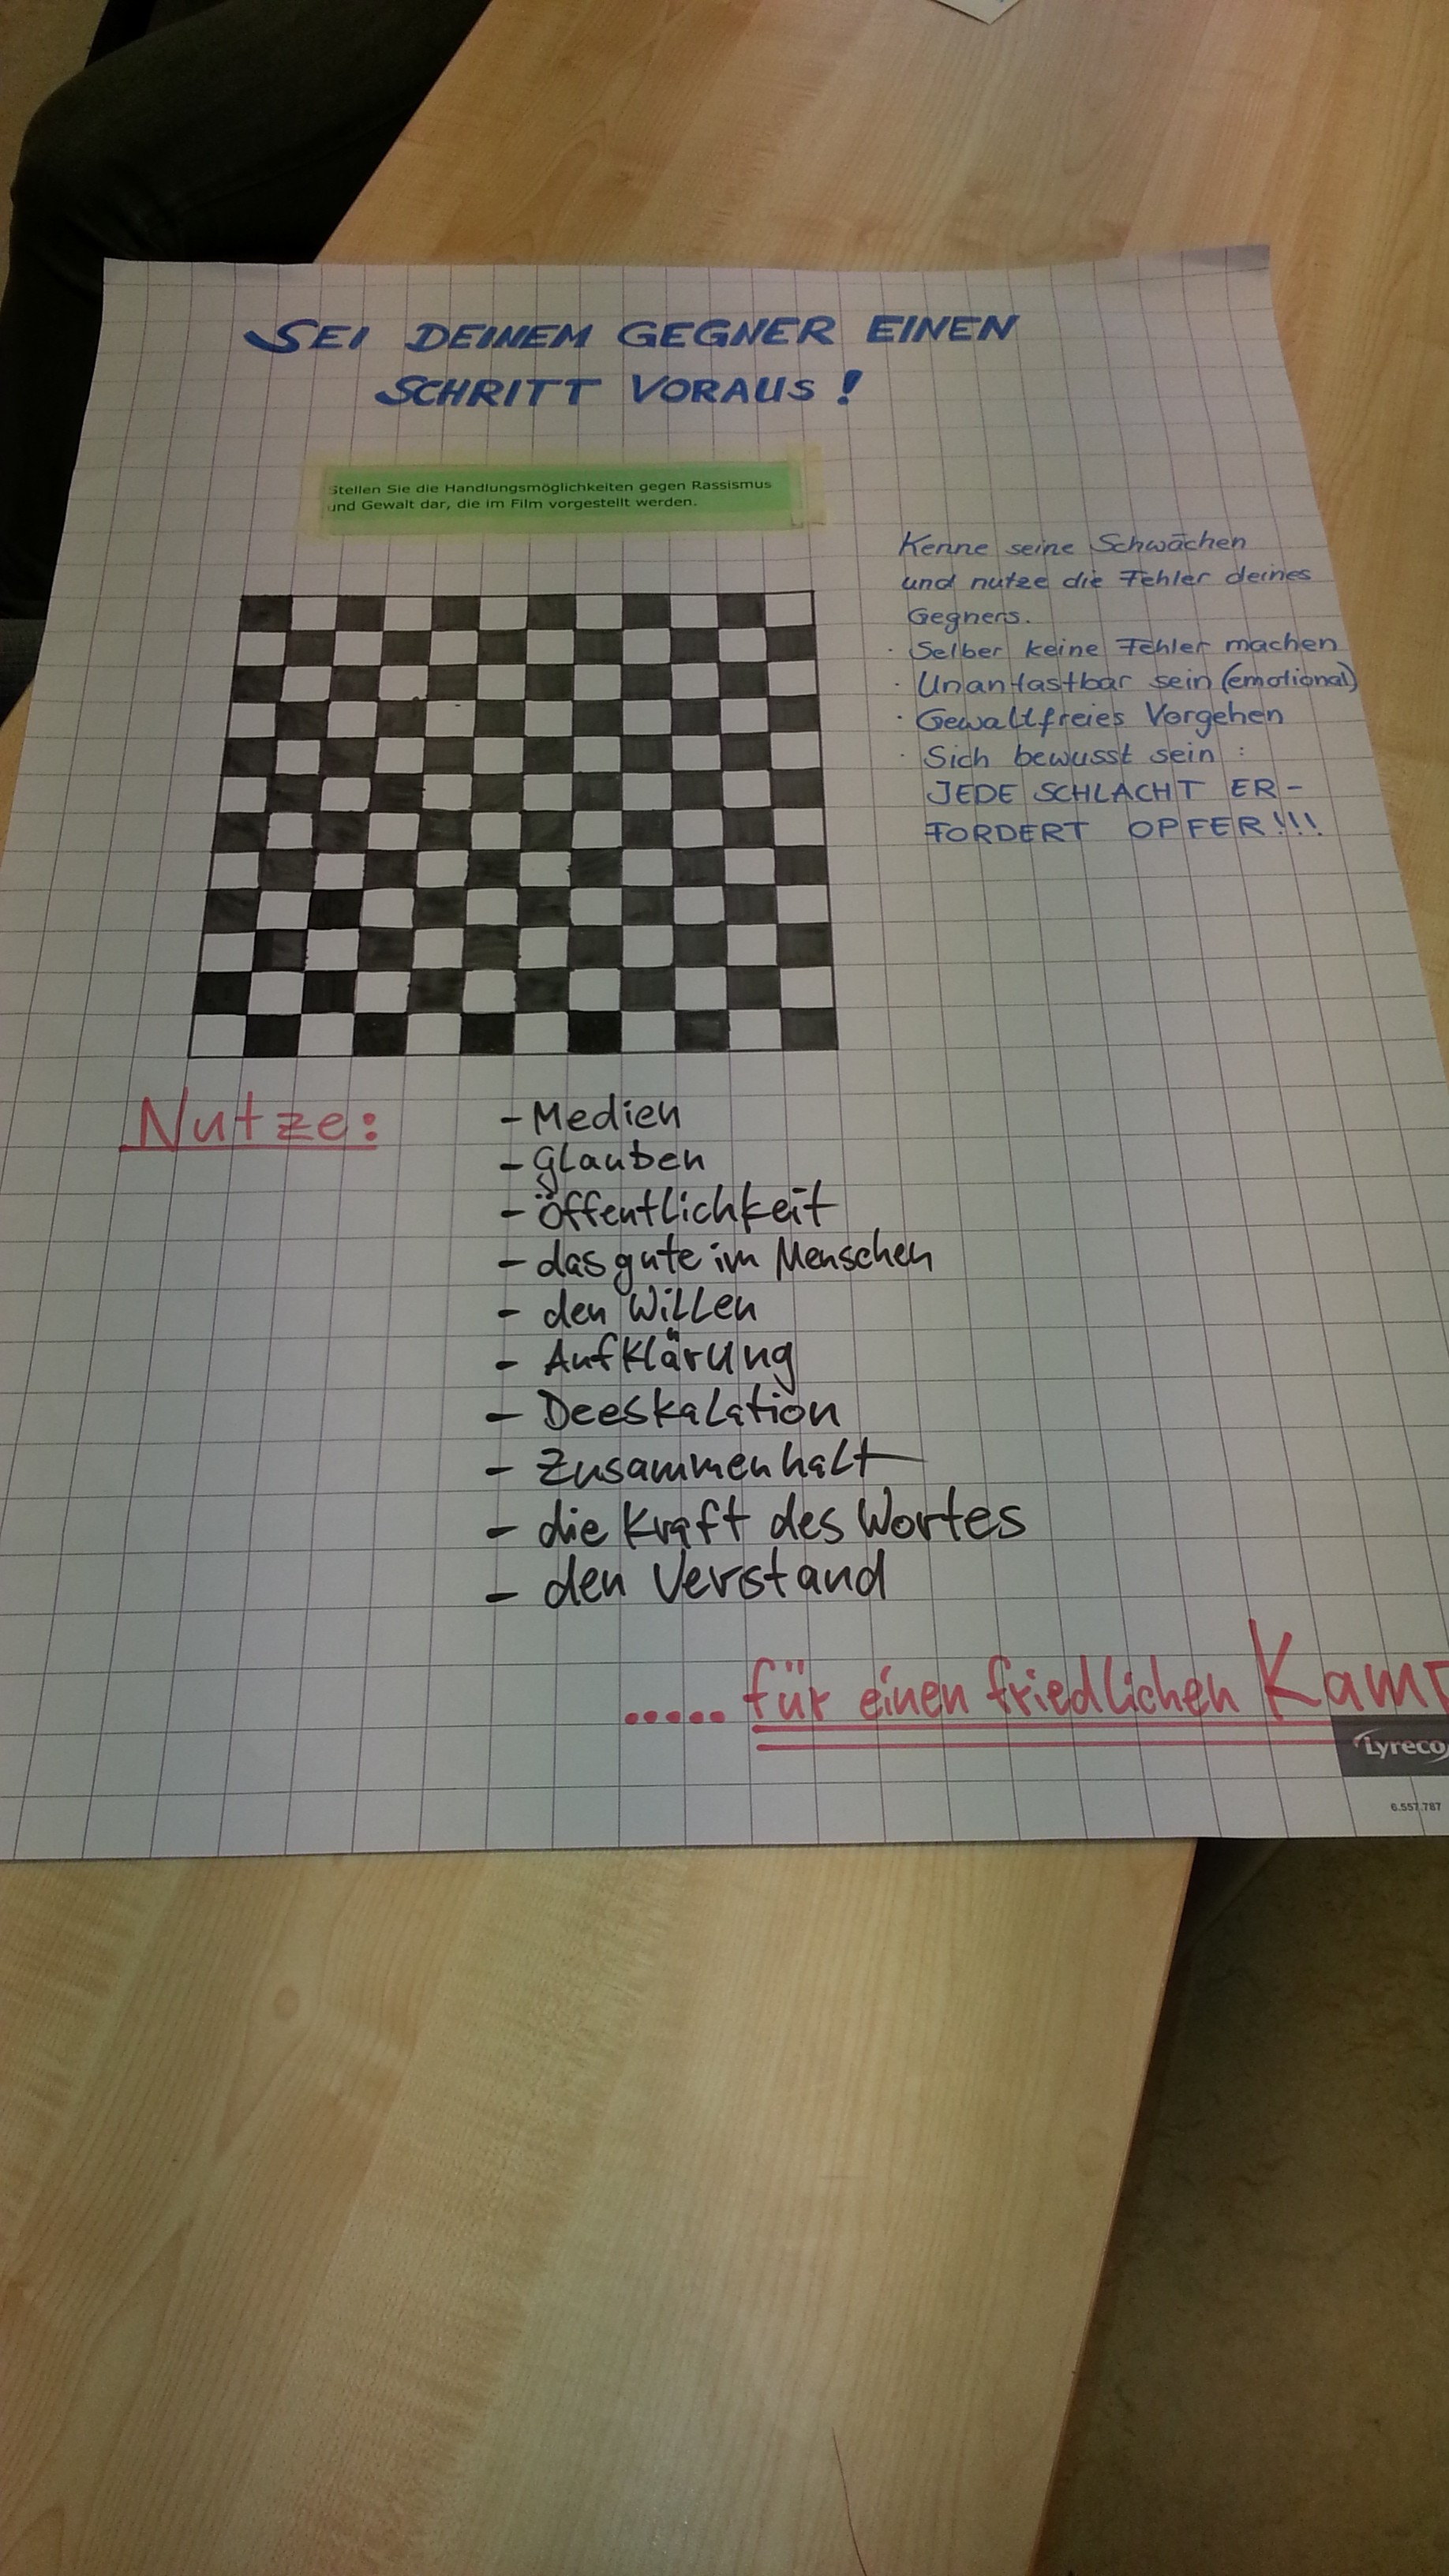 SEI DEINEM GEGNER EINEN
SCHRITT VORAUS!
Stellen Sie die Handlungsmöglichkeiten gegen Rassismus
und Gewalt dar, die im Film vorgestellt werden.
Kenne seine Schwächen
und nutze die Fehler deines
Gegners.
· Selber keine Fehler machen
· Unantastbar sein (emotional)
· Gewaltfreies Vorgehen
· Sich bewusst sein :
JEDE SCHLACHT ER-
FORDERT OPFER!!!
Nutze:
- Medien
- Glauben
- öffentlichkeit
- das gute im Menschen
- den Willen
- Aufklärung
- Deeskalation
- Zusammenhalt
- die Kraft des Wortes
- den Verstand
..... für einen friedlichen Kam
Lyreco
6.557.787